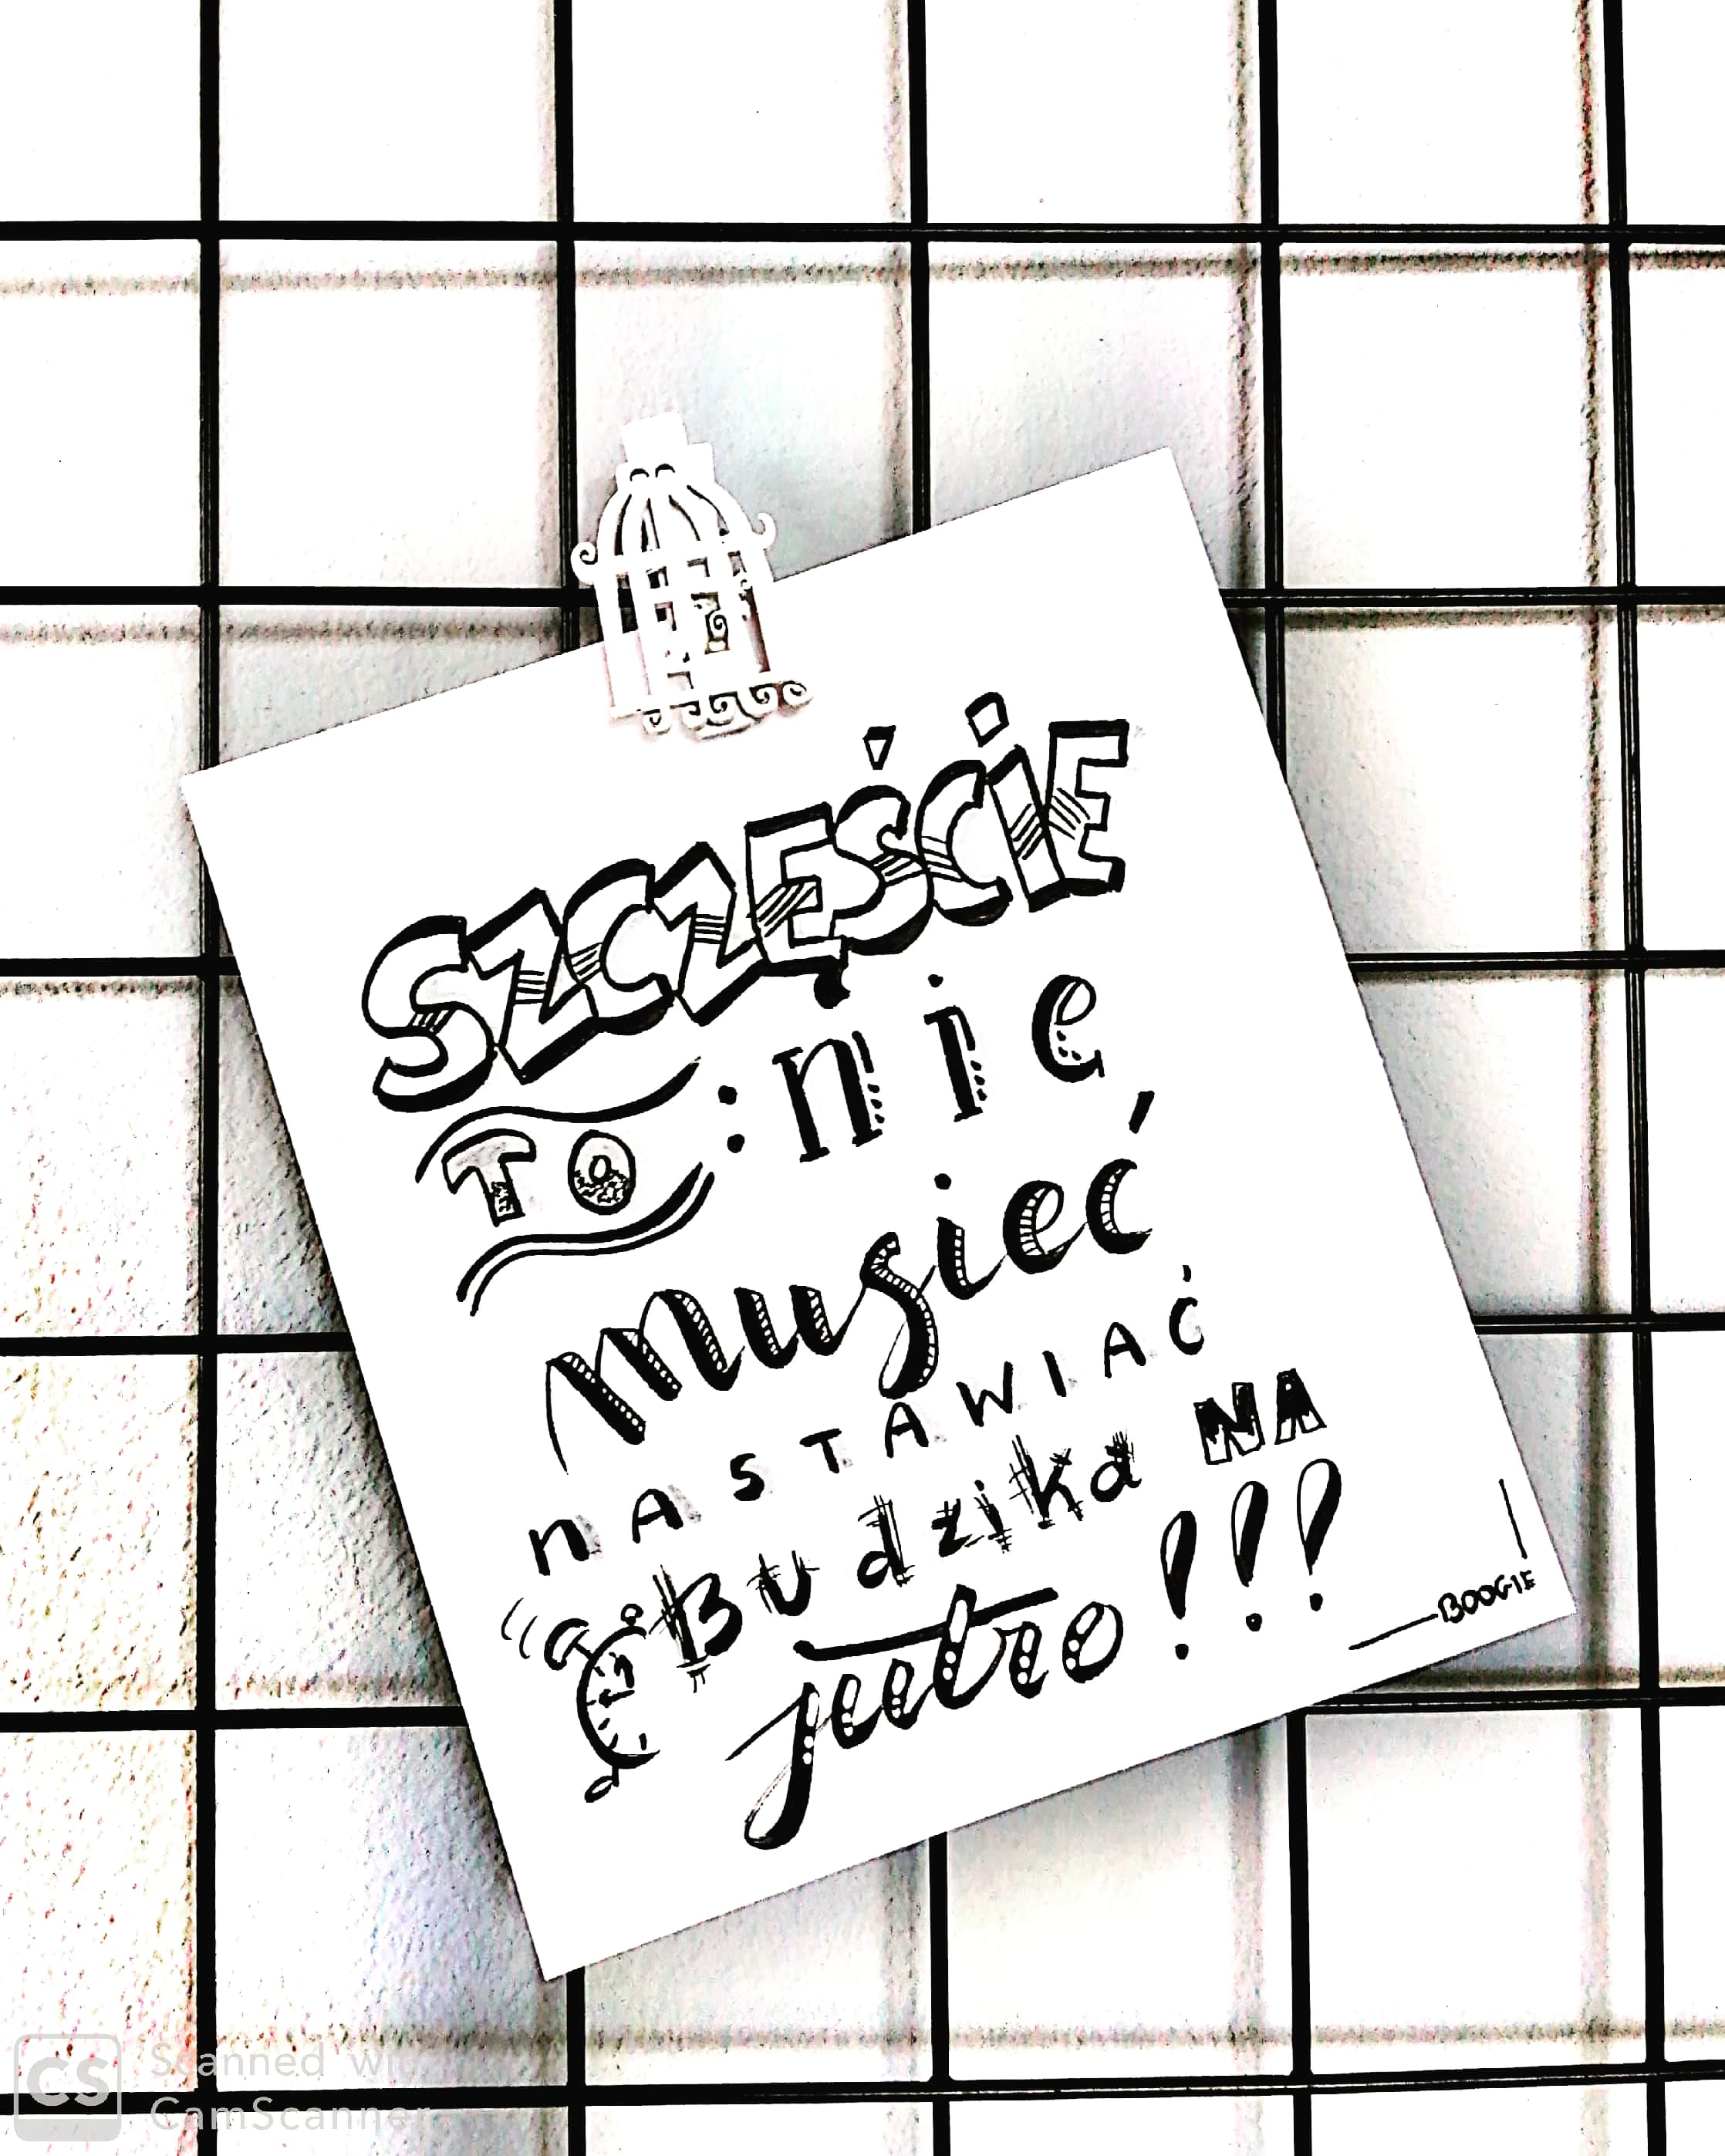 SZCZĘŚCIE
TO : nie
musieć
NASTAWIAĆ
Budzika NA
jutro!!!
BOOGIE
CS Scanned with
CamScanner